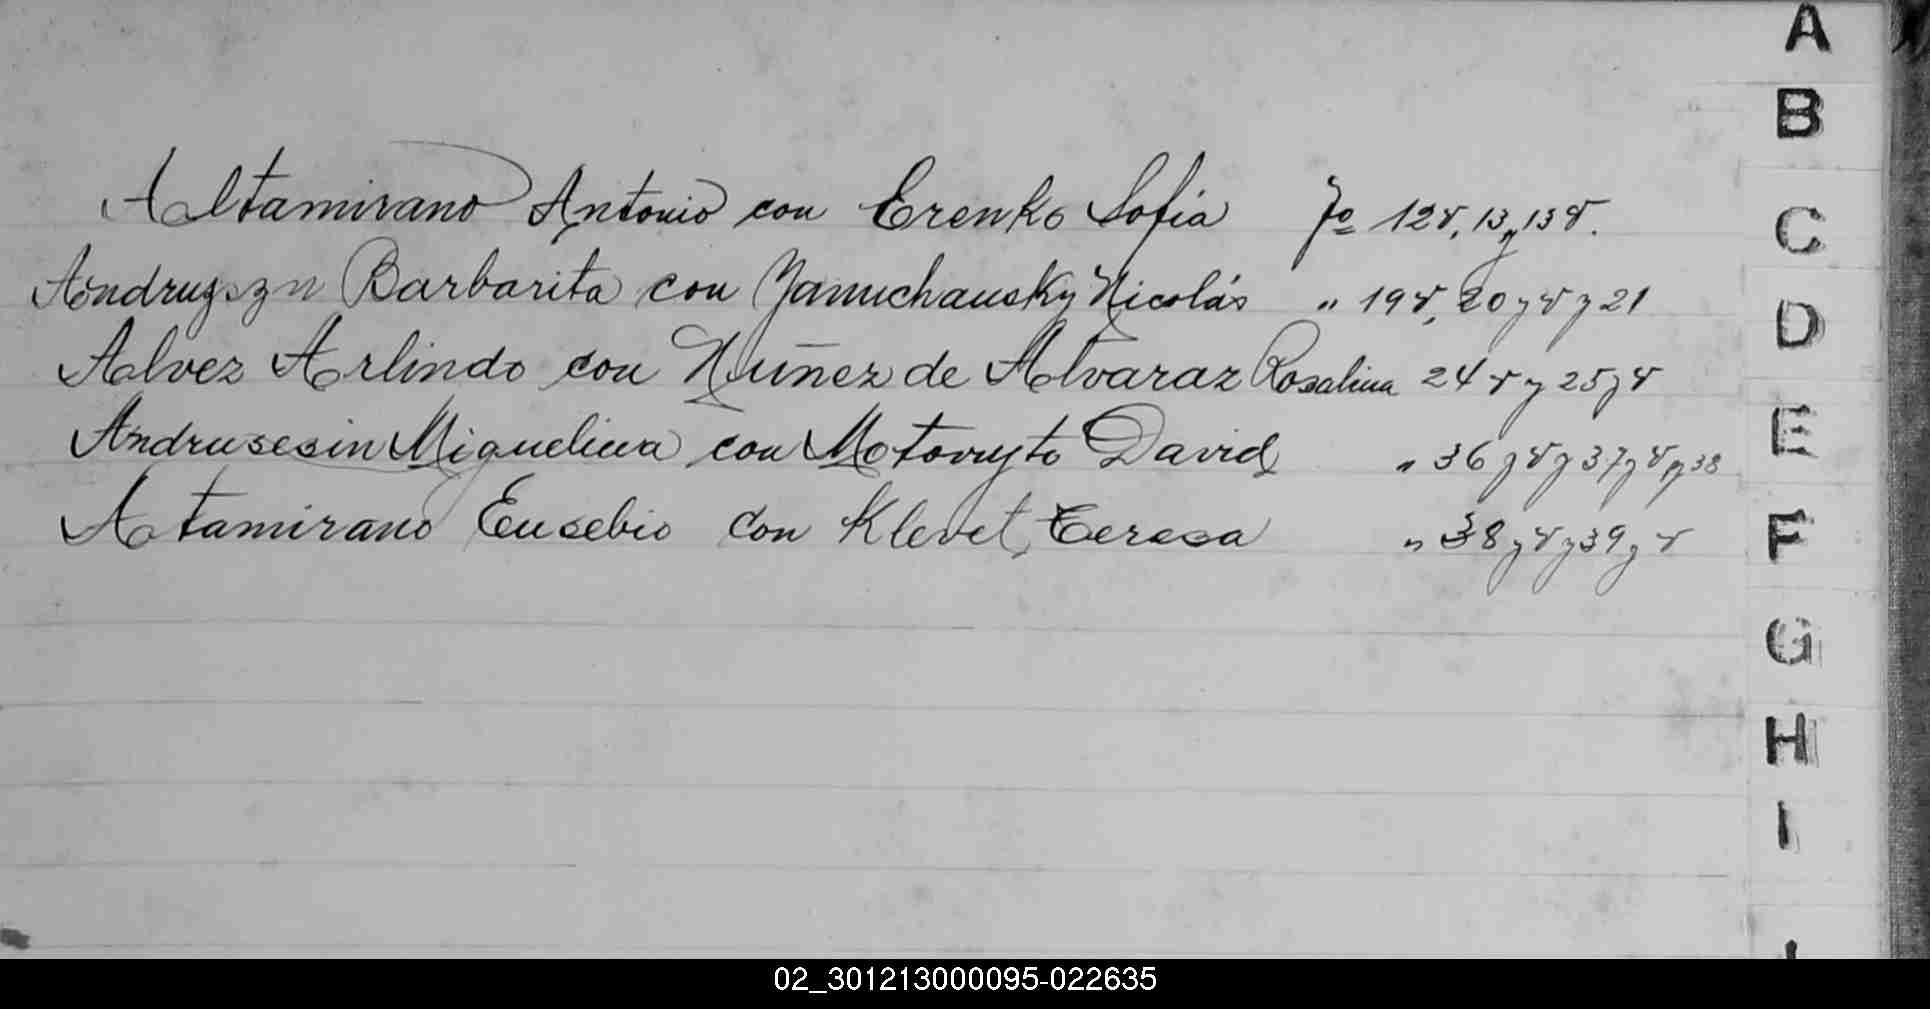 A
B
Altamirano Antonio con Erenko Sofia Fo 12v, 13 y 13v.
C
Barbarita con Nicolás " 19v, 20 y v y 21
D
Alvez Arlindo con Nuñez de Alvaraz Rosalina 24 v y 25 y v
Andrusesin Miguelina con David " 36 y v y 37 y v y 38
E
Atamirano Eusebio con Klevet, Teresa " 38 y v y 39 y v
F
G
H
I
02_301213000095-022635